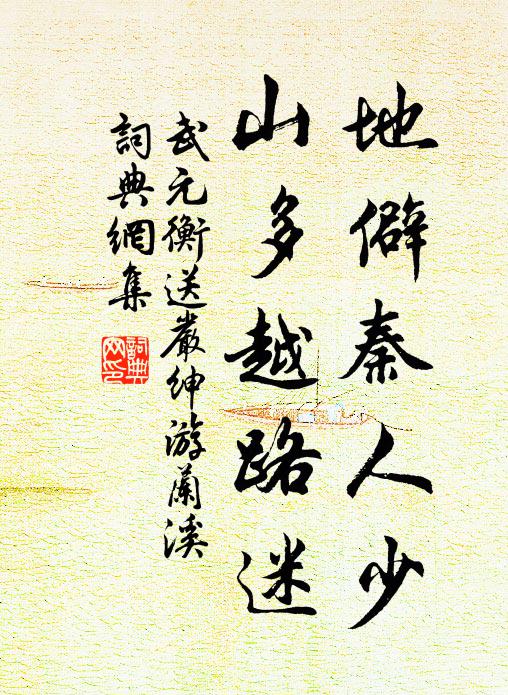 地僻秦人少
山多越路迷
武元衡送嚴紳游蘭溪
詞典網集
詞典
网印